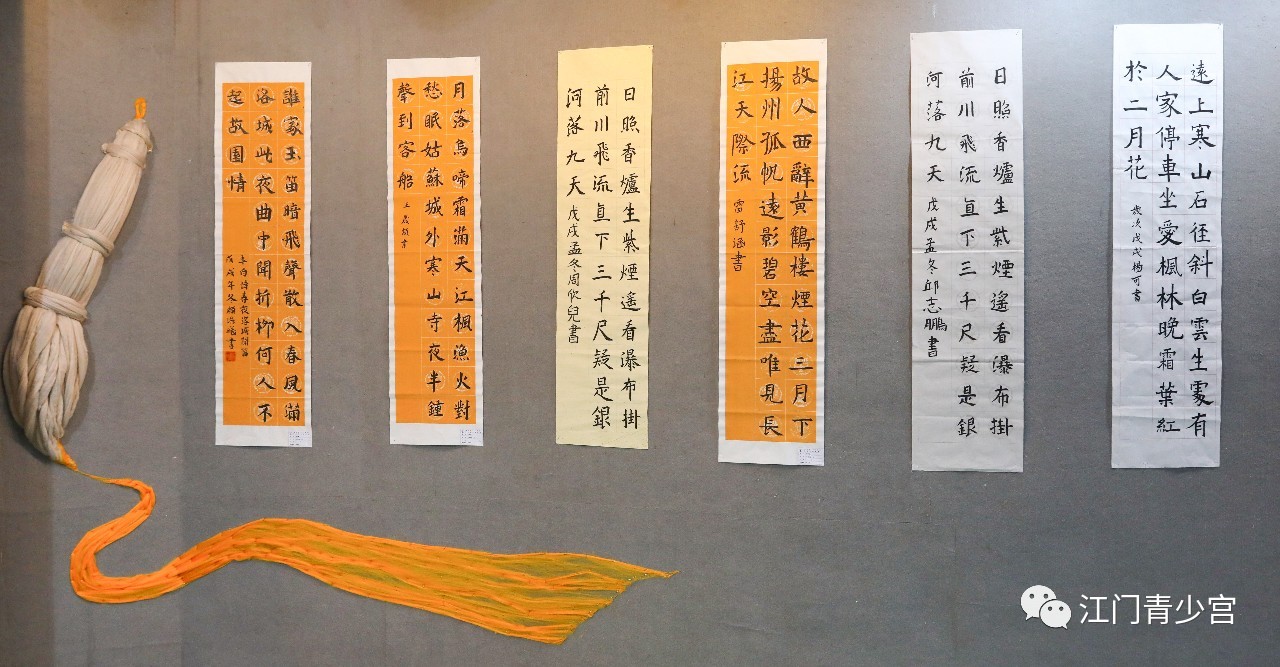 誰家玉笛暗飛聲散入春風滿
洛城此夜曲中聞折柳何人不
起故園情
李白詩春夜洛城聞笛
戊戌年冬
月落烏啼霜滿天江楓漁火對
愁眠姑蘇城外寒山寺夜半鐘
聲到客船
日照香爐生紫煙遙看瀑布掛
前川飛流直下三千尺疑是銀
河落九天 戊戌孟冬周欣兒書
故人西辭黃鶴樓煙花三月下
揚州孤帆遠影碧空盡唯見長
江天際流 雷舒涵書
日照香爐生紫煙遙看瀑布掛
前川飛流直下三千尺疑是銀
河落九天 戊戌孟冬邱志鵬書
遠上寒山石徑斜白雲生處有
人家停車坐愛楓林晚霜葉紅
於二月花 歲次戊戌楊可書
江门青少宫